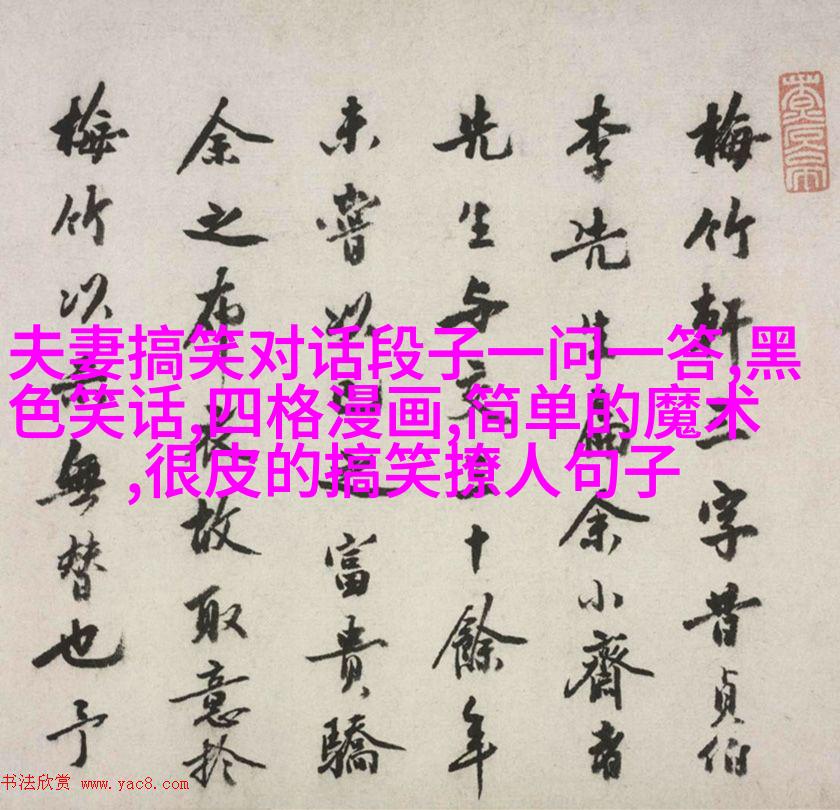 梅竹軒三字昔貞伯
李先生為余小齋書
先生与交十餘年
未嘗以富貴驕
余之布衣故取意於
梅竹以無替也予
夫妻搞笑对话段子一问一答,黑
色笑话,四格漫画,简单的魔术
,很皮的搞笑撩人句子
书法欣赏 www.yac8.com